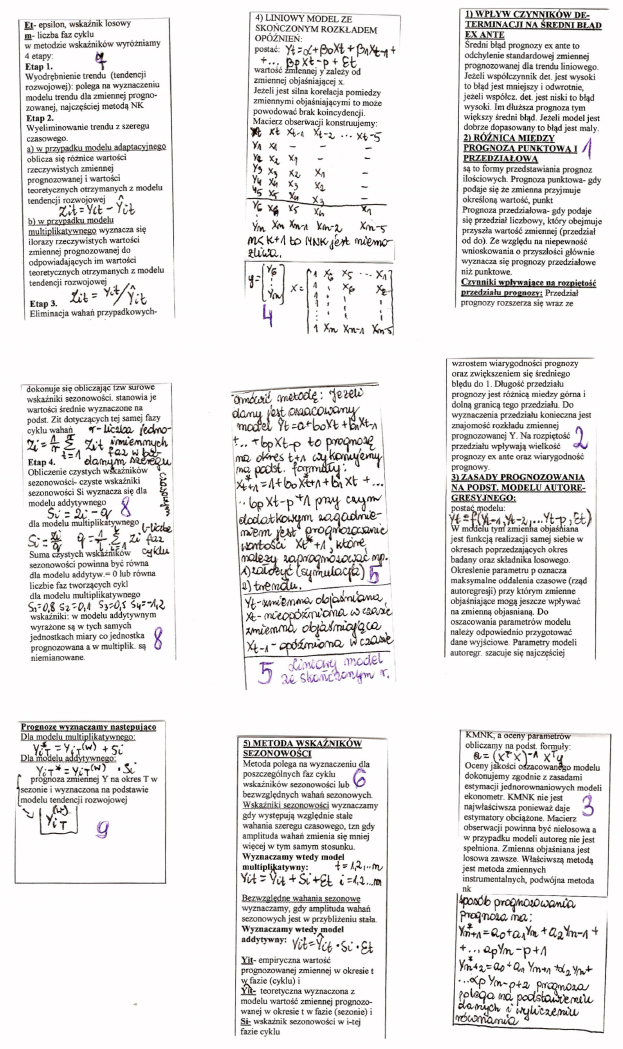 Et- epsilon, wskaźnik losowy
m- liczba faz cyklu
w metodzie wskaźników wyróżniamy
4 etapy:
7
Etap 1.
Wyodrębnienie trendu (tendencji
rozwojowej): polega na wyznaczeniu
modelu trendu dla zmiennej progno-
zowanej, najczęściej metodą NK
Etap 2.
Wyeliminowanie trendu z szeregu
czasowego.
a) w przypadku modelu adaptacyjnego
oblicza się różnice wartości
rzeczywistych zmiennej
prognozowanej i wartości
teoretycznych otrzymanych z modelu
tendencji rozwojowej
Zit = Yit - Ŷit
b) w przypadku modelu
multiplikatywnego wyznacza się
ilorazy rzeczywistych wartości
zmiennej prognozowanej do
odpowiadających im wartości
teoretycznych otrzymanych z modelu
tendencji rozwojowej
Zit = Yit/Ŷit
Etap 3.
Eliminacja wahań przypadkowych-
dokonuje się obliczając tzw surowe
wskaźniki sezonowości. stanowia je
wartości średnie wyznaczone na
podst. Zit dotyczących tej samej fazy
cyklu wahań r-liczba jedno-
imiennych
faz w ba-
danym szeregu
Zi = 1/r Σ t=1 Zit
Etap 4.
Obliczenie czystych wskaźników
sezonowości- czyste wskaźniki
sezonowości Si wyznacza się dla
modelu addytywnego
Si = Zi - q
8
dla modelu multiplikatywnego
Si = Zi/q q = 1/l Σ i=1 Zi l-liczba faz cyklu
Suma czystych wskaźników
sezonowości powinna być równa
dla modelu addytyw.= 0 lub równa
liczbie faz tworzących cykl
dla modelu multiplikatywnego
S1=0,8 S2=0,1 S3=0,5 S4=-1,2
wskaźniki: w modelu addytywnym
wyrażone są w tych samych
jednostkach miary co jednostka
prognozowana a w multiplik. są
niemianowane.
8
Prognozę wyznaczamy następująco
Dla modelu multiplikatywnego:
YiT* = YiT(w) + Si
Dla modelu addytywnego:
YiT* = YiT(w) · Si
prognoza zmiennej Y na okres T w
sezonie i wyznaczona na podstawie
modelu tendencji rozwojowej
YiT(w)
9
4) LINIOWY MODEL ZE
SKOŃCZONYM ROZKŁADEM
OPÓŹNIEŃ:
postać: Yt=α+β0Xt+β1Xt-1+
+... βpXt-p+Et
wartość zmiennej y zależy od
zmiennej objaśniającej x.
Jeżeli jest silna korelacja pomiedzy
zmiennymi objaśniającymi to może
powodować brak koincydencji.
Macierz obserwacji konstruujemy:
Yt Xt Xt-1 Xt-2 ... Xt-5
Y1 X1 - - -
Y2 X2 X1 - -
Y3 X3 X2 X1 -
Y4 X4 X3 X2 -
Y5 X5 X4 X3 -
Y6 X6 X5 X4 X1
Ym Xm Xm-1 Xm-2 Xm-5
m<K+1 to MNK jest niemo-
żliwa.
y= [Y6 ⋮ Ym] X= [1 X6 X5 ... X1
1 Xm Xm-1 Xm-5]
4
omówić metodę: Jeżeli
dany jest oszacowany
model Yt=a+b0Xt+b1Xt-1
+...+bpXt-p to prognozę
na okres t+1 wykonujemy
na podst. formuły:
X*t+1=1+b0Xt+1+b1Xt+...
.. bpXt-p+1 przy czym
dodatkowym zagadnie-
niem jest prognozowanie
wartości X*t+1, które
należy zaprognozować np.
1) założyć (symulacja)
2) trendu.
5
Yt-zmienna objaśniana
Xt-nieopóźniona w czasie
zmienna objaśniająca
Xt-1-opóźniona w czasie
5 Liniowy model
ze skończonym r.
5) METODA WSKAŹNIKÓW
SEZONOWOŚCI
Metoda polega na wyznaczeniu dla
poszczególnych faz cyklu
wskaźników sezonowości lub
bezwzględnych wahań sezonowych.
6
Wskaźniki sezonowości wyznaczamy
gdy występują względnie stałe
wahania szeregu czasowego, tzn gdy
amplituda wahań zmienia się mniej
więcej w tym samym stosunku.
Wyznaczamy wtedy model
multiplikatywny: t=1,2,..n
Yit = Ŷit + Si + Et i=1,2..m
Bezwzględne wahania sezonowe
wyznaczamy, gdy amplituda wahań
sezonowych jest w przybliżeniu stała.
Wyznaczamy wtedy model
addytywny: Yit=Ŷit · Si · Et
Yit- empiryczna wartość
prognozowanej zmiennej w okresie t
w fazie (cyklu) i
Ŷit- teoretyczna wyznaczona z
modelu wartość zmiennej prognozo-
wanej w okresie t w fazie (sezonie) i
Si- wskaźnik sezonowości w i-tej
fazie cyklu
1) WPŁYW CZYNNIKÓW DE-
TERMINACJI NA ŚREDNI BŁĄD
EX ANTE
Średni błąd prognozy ex ante to
odchylenie standardowe zmiennej
prognozowanej dla trendu liniowego.
Jeżeli współczynnik det. jest wysoki
to błąd jest mniejszy i odwrotnie,
jeżeli współcz. det. jest niski to błąd
wysoki. Im dłuższa prognoza tym
większy średni błąd. Jeżeli model jest
dobrze dopasowany to błąd jest maly.
2) RÓŻNICA MIĘDZY
PROGNOZĄ PUNKTOWĄ I
PRZEDZIAŁOWĄ
1
są to formy przedstawiania prognoz
ilościowych. Prognoza punktowa- gdy
podaje się że zmienna przyjmuje
określoną wartość, punkt
Prognoza przedziałowa- gdy podaje
się przedział liczbowy, który obejmuje
przyszła wartość zmiennej (przedział
od do). Ze względu na niepewność
wnioskowania o przyszłości głównie
wyznacza się prognozy przedziałowe
niż punktowe.
Czynniki wpływające na rozpiętość
przedziału prognozy: Przedział
prognozy rozszerza się wraz ze
wzrostem wiarygodności prognozy
oraz zwiększeniem się średniego
błędu do 1. Długość przedziału
prognozy jest różnica miedzy górna i
dolną granicą tego przedziału. Do
wyznaczenia przedziału konieczna jest
znajomość rozkładu zmiennej
prognozowanej Y. Na rozpiętość
przedziału wpływają wielkość
prognozy ex ante oraz wiarygodność
prognowy.
2
3) ZASADY PROGNOZOWANIA
NA PODST. MODELU AUTORE-
GRESYJNEGO:
postać modelu:
Yt=f(Yt-1,Yt-2,...Yt-p,Et)
W modelu tym zmienna objaśniana
jest funkcją realizacji samej siebie w
okresach poprzedzających okres
badany oraz składnika losowego.
Określenie parametru p oznacza
maksymalne oddalenia czasowe (rząd
autoregresji) przy którym zmienne
objaśniające mogą jeszcze wpływać
na zmienną objaśnianą. Do
oszacowania parametrów modelu
należy odpowiednio przygotować
dane wyjściowe. Parametry modeli
autoregr. szacuje się najczęściej
KMNK, a oceny parametrów
obliczamy na podst. formuły:
a = (XᵀX)⁻¹ Xᵀy
Oceny jakości oszacowanego modelu
dokonujemy zgodnie z zasadami
estymacji jednorownaniowych modeli
ekonometr. KMNK nie jest
najwłaściwsza ponieważ daje
estymatory obciążone. Macierz
obserwacji powinna być nielosowa a
w przypadku modeli autoreg nie jest
spełniona. Zmienna objaśniana jest
losowa zawsze. Właściwszą metodą
jest metoda zmiennych
instrumentalnych, podwójna metoda
nk
3
sposób prognozowania
prognoza na:
Y*n+1=a0+a1Yn+a2Yn-1+
+... apYn-p+1
Y*n+2=a0+a1Yn+1+α2Yn+
...αpYn-p+2 prognoza
polega na podstawieniu
danych i wyliczeniu
równania